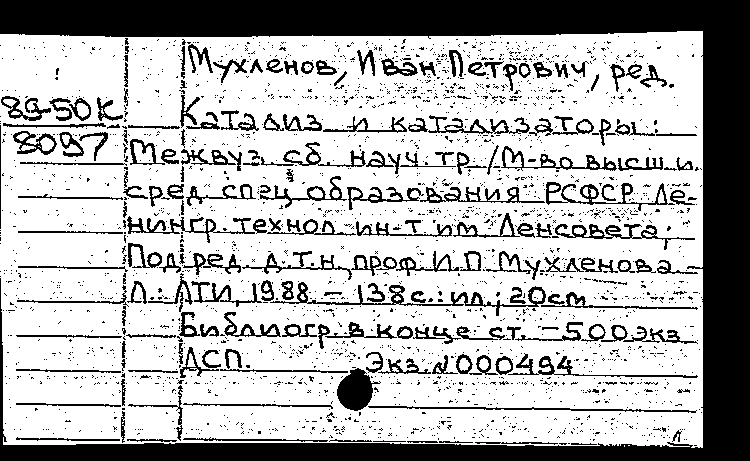 Мухленов, Иван Петрович, ред.
89-50К
8097
Катализ и катализаторы:
Межвуз. сб. науч. тр. / М-во высш. и
сред. спец. образования РСФСР, Ле-
нингр. технол. ин-т им. Ленсовета;
Под ред. д.т.н., проф. И.П. Мухленова. -
Л.: ЛТИ, 1988. - 138 с.: ил.; 20 см
Библиогр. в конце ст. - 500 экз.
ДСП. Экз. № 000494